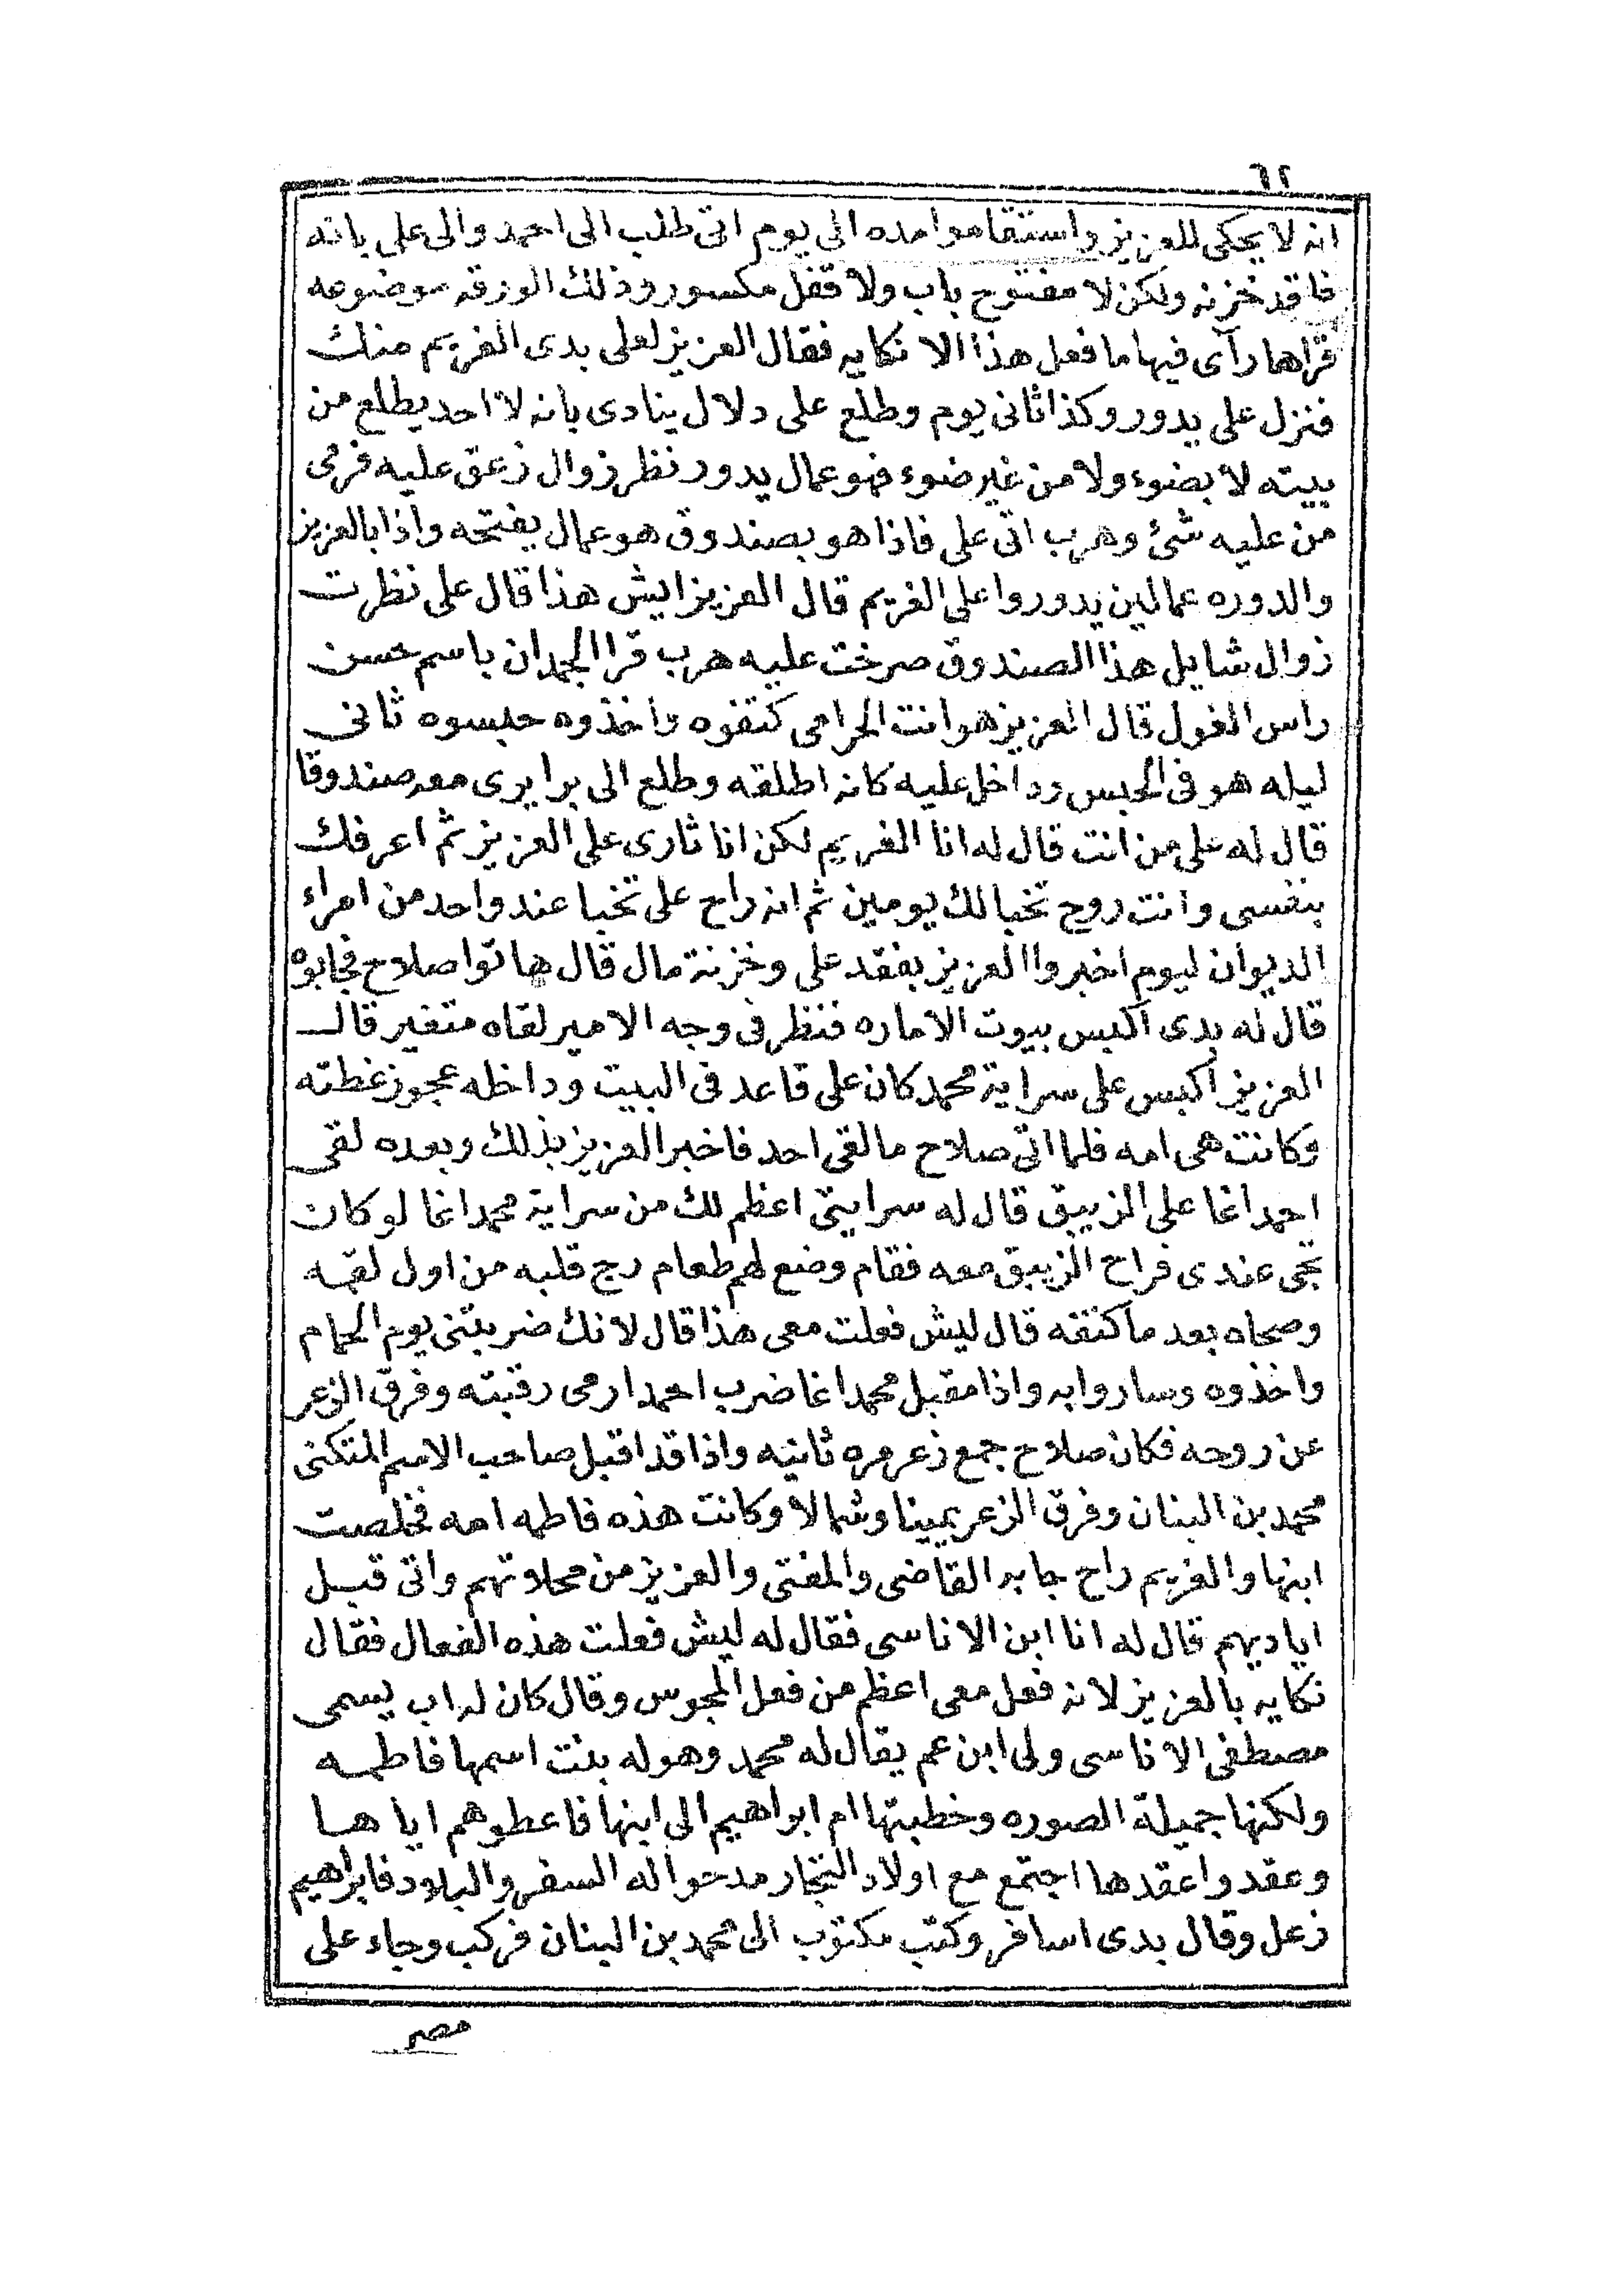 ٦٢
انه لا يحكى للعزيز واستقاموا مده الى يوم اتى طلب الى احمد والى على بانه
فاقد خزنه ولكن لا مفتوح باب ولا قفل مكسور وذلك الورقه موضوعه
قراها رآى فيها ما فعل هذا الا نكايه فقال العزيز لعلى بدى الغريم منك
فنزل على يدور وكذا ثانى يوم وطلع على دلال ينادى بانه لا احد يطلع من
بيته لا بضوء ولا من غير ضوء فهو عمال يدور نظر زوال زعق عليه فرمى
من عليه شئ وهرب اتى على فاذا هو بصندوق هو عمال يفتحه واذا بالعزيز
والدوره عمالين يدوروا على الغريم قال العزيز ايش هذا قال على نظرت
زوال شايل هذا الصندوق صرخت عليه هرب قرا الجمدان باسم حسن
راس الغول قال العزيز هو انت الحرامى كتفوه واخذوه حبسوه ثانى
ليله هو فى الحبس وداخل عليه كانه اطلقه وطلع الى برا يرى معه صندوقا
قال له على من انت قال له انا الغريم لكن انا ثارى على العزيز ثم اعرفك
بنفسى وانت روح تخبا لك يومين ثم انه راح على تخبا عند واحد من امراء
الديوان ليوم اخبروا العزيز بفقد على وخزنة مال قال هاتوا صلاح فجابوه
قال له بدى اكبس بيوت الاماره فنظر فى وجه الامير لقاه متغير قال
العزيز اكبس على سراية محمد كان على قاعد فى البيت وداخله عجوز غطته
وكانت هى امه فلما اتى صلاح ما لقى احد فاخبر العزيز بذلك وبعده لقى
احمد اغا على الزيبق قال له سرايتى اعظم لك من سراية محمد اغا لو كان
تجى عندى فراح الزيبق معه فقام وضع لهم طعام رج قلبه من اول لقمه
وصحاه بعد ما كتفه قال ليش فعلت معى هذا قال لانك ضربتنى يوم الحمام
واخذوه وساروا به واذا مقبل محمد اغا ضرب احمد ارمى رقبته وفرق الزعر
عن روحه فكان صلاح جمع زعر مره ثانيه واذا قد اقبل صاحب الاسم المتكنى
محمد بن البنان وفرق الزعر يمينا وشمالا وكانت هذه فاطمه امه فخلصت
ابنها والغريم راح جابه القاضى والمفتى والعزيز من محلاتهم واتى قبل
اياديهم قال له انا ابن الاناسى فقال له ليش فعلت هذه الفعال فقال
نكايه بالعزيز لانه فعل معى اعظم من فعل المجوس وقال كان له اب يسمى
مصطفى الاناسى ولى ابن عم يقال له محمد وهو له بنت اسمها فاطمه
ولكنها جميلة الصوره وخطبتها ام ابراهيم الى ابنها فاعطوهم اياها
وعقدوا عقدها اجتمع مع اولاد التجار مدحوا له السفر والبلاد فابراهيم
زعل وقال بدى اسافر وكتب مكتوب الى محمد بن البنان فركب وجاء على
مصر